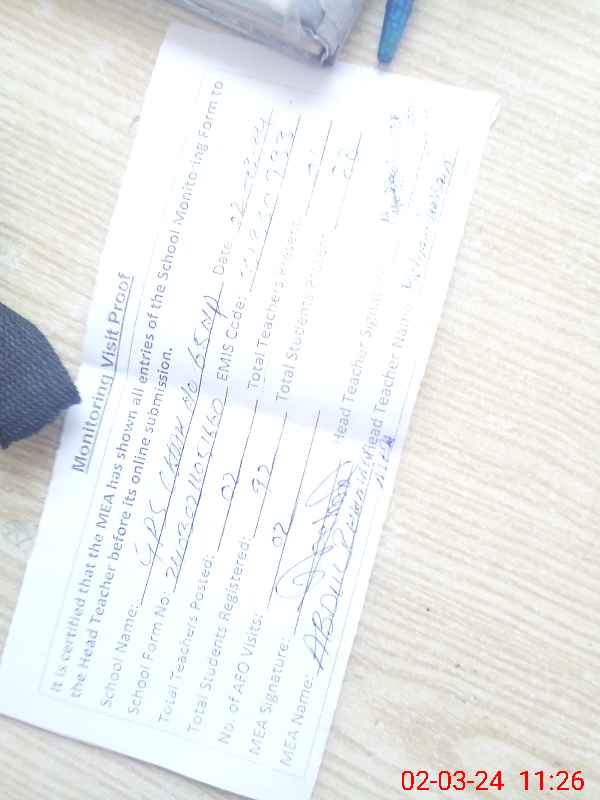 Monitoring Visit Proof
It is certified that the MEA has shown all entries of the School Monitoring Form to
the Head Teacher before its online submission.
School Name: GPS CHAK NO 65 NP Date: 02-03-24
School Form No: EMIS Code:
Total Teachers Posted: 02 Total Teachers Present:
Total Students Registered: 92 Total Students Present: 28
No. of AEO Visits: 02
MEA Signature: Head Teacher Signature:
MEA Name: ABDUL REHMAN Head Teacher Name:
02-03-24 11:26